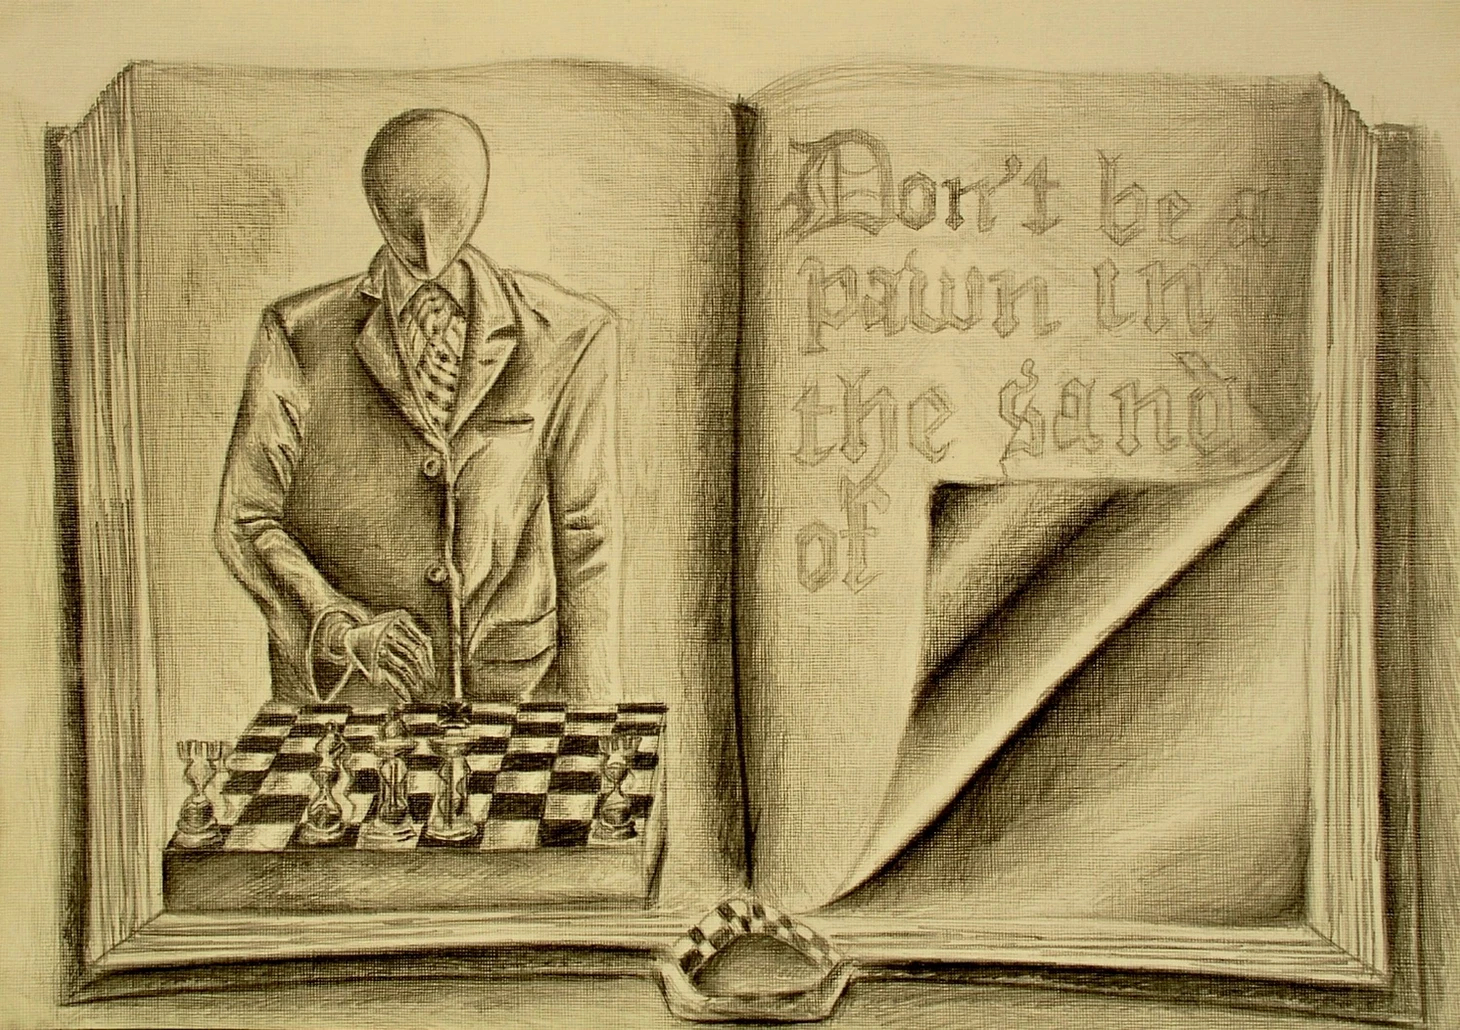 Don't be a
pawn in
the sand
of